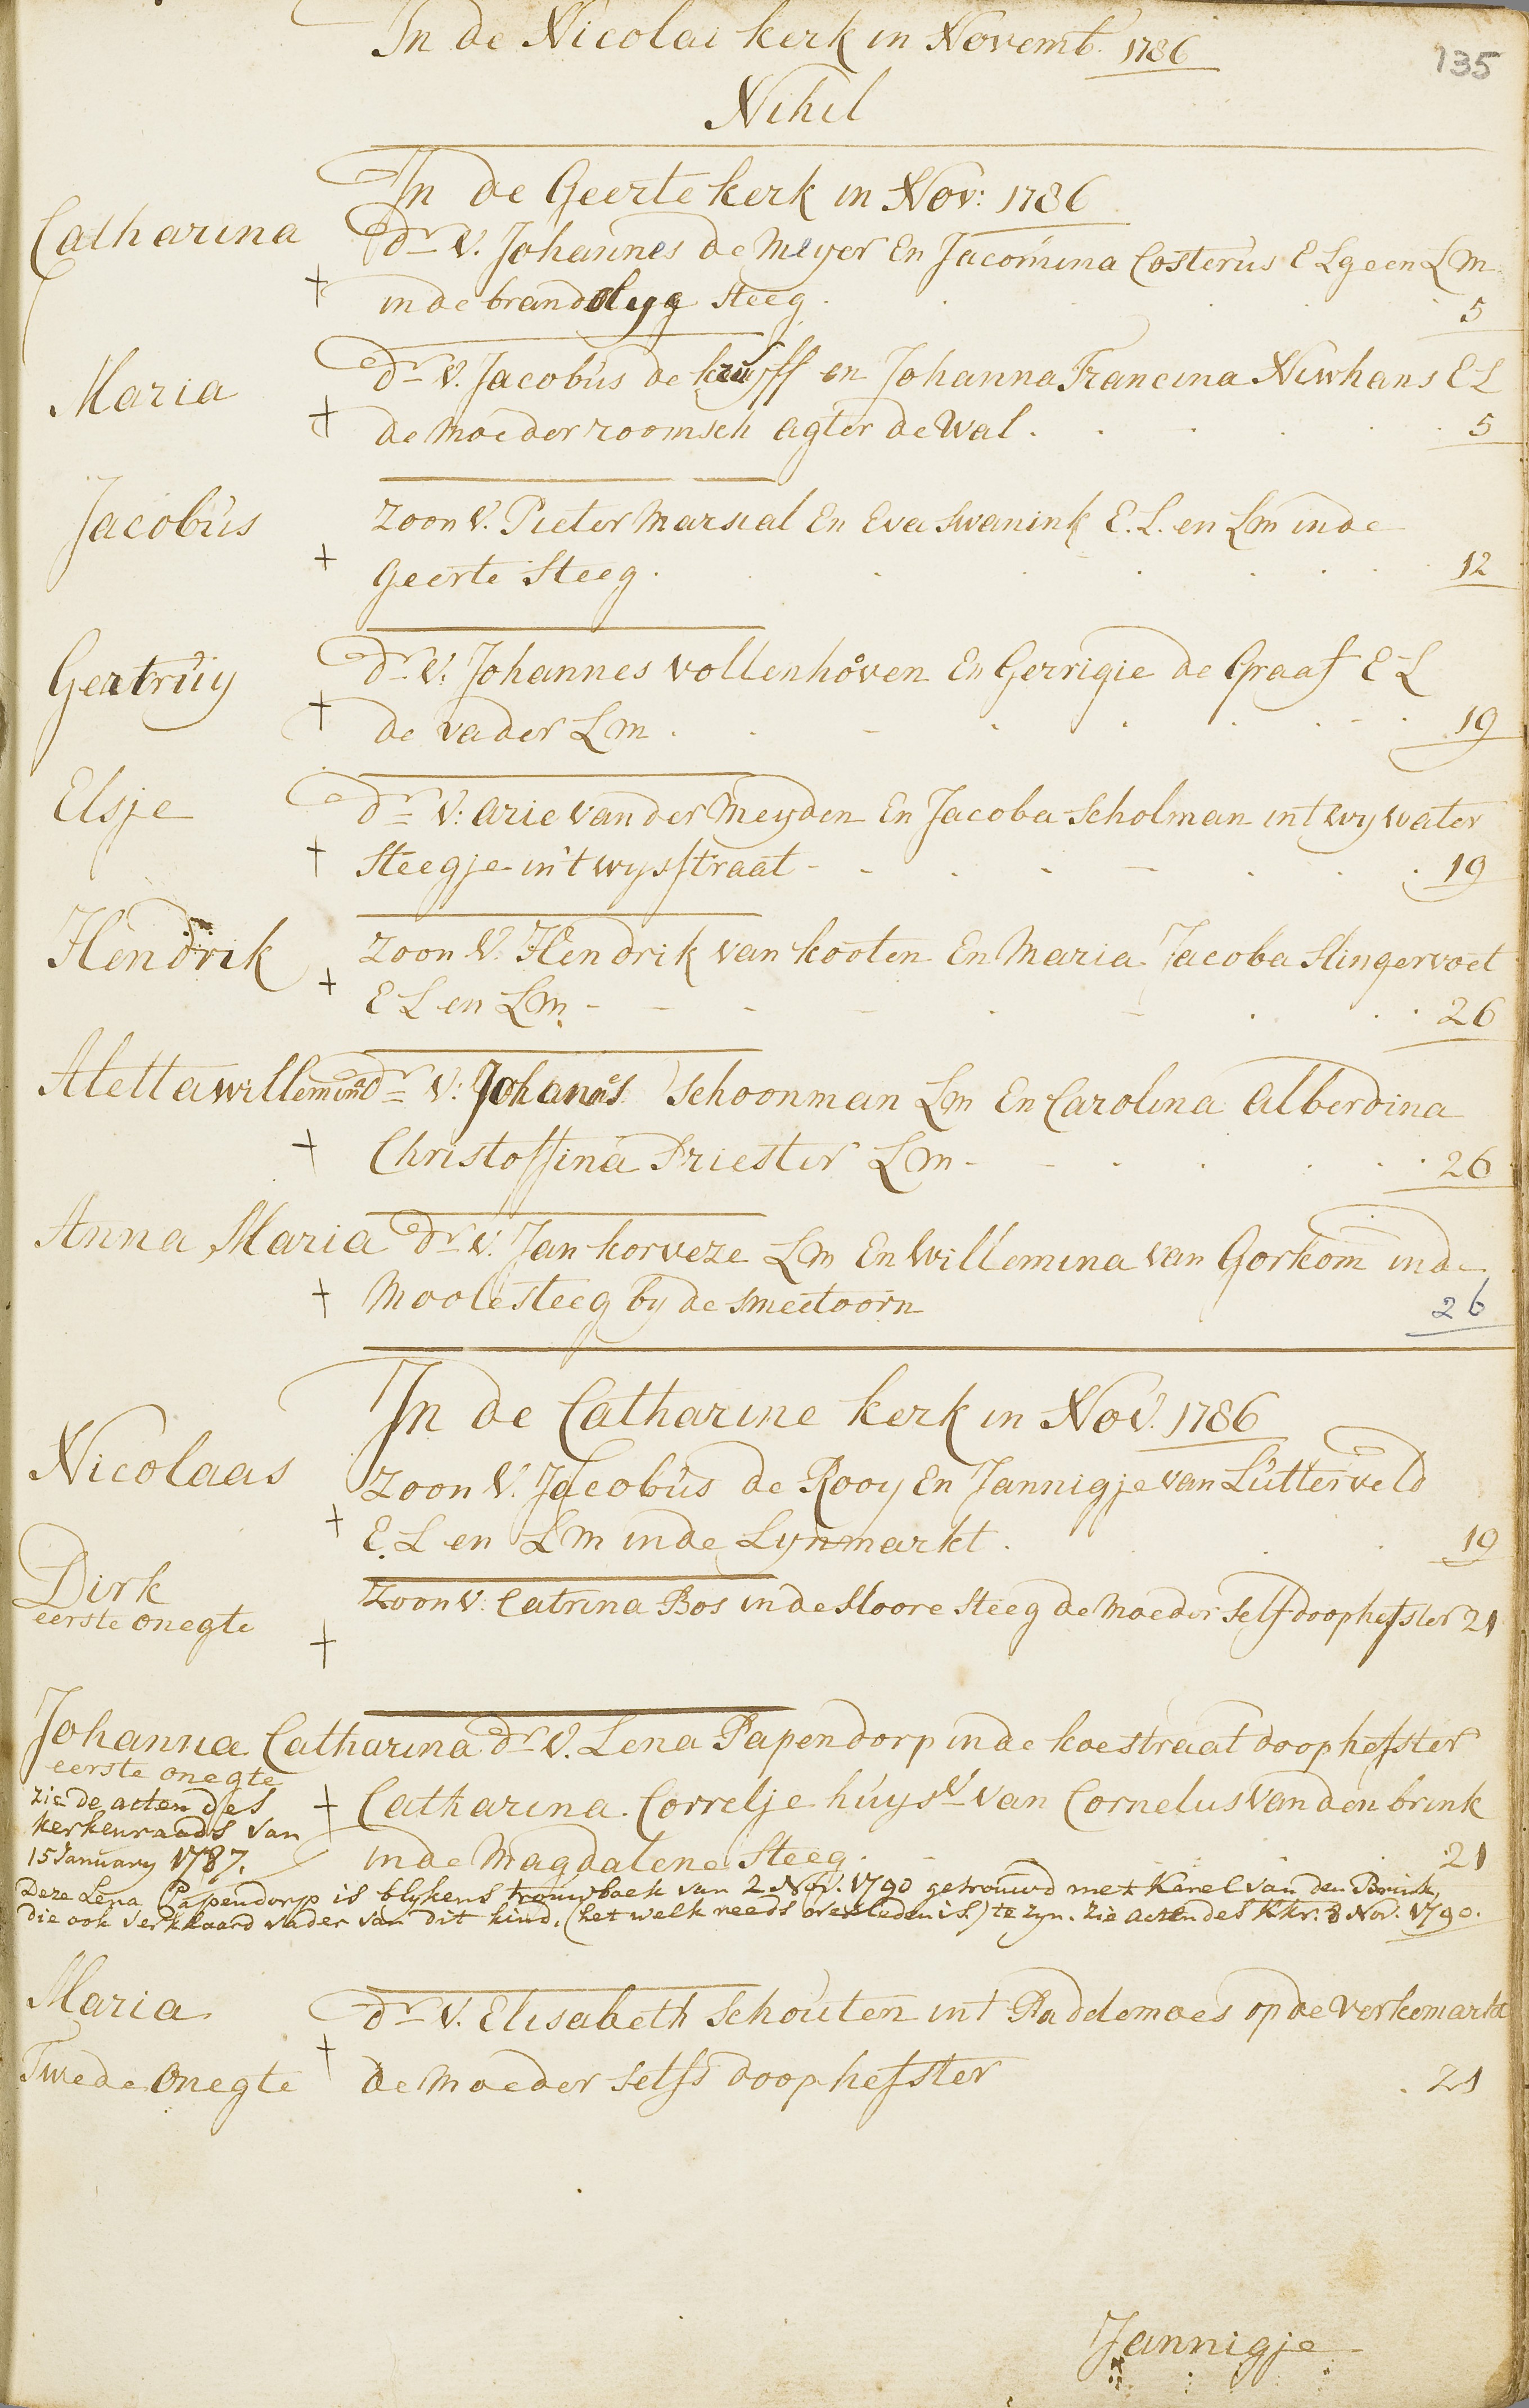 In de Nicolai kerk in Novemb. 1786
135
Nihil
In de Geerte kerk in Nov: 1786
Catharina dr V. Johannes de Meyer En Jacomina Costerus E L geen Lm
+ in de brandolyg steeg . . . . 5
Maria dr V. Jacobus de kruyff en Johanna Francina Niwhans E L
+ de Moeder roomsch agter de Wal . . . . . 5
Jacobus zoon V. Pieter Marsial En Eva Swanink E. L. en Lm in de
+ Geerte Steeg . . . . . 12
Gertruy dr V. Johannes vollenhoven En Gerrigie de Graaf E L
+ de vader Lm . . . . . 19
Elsje dr V: Arie van der Meyden En Jacoba Scholman int wywater
+ Steegje in't wysstraat - . . . . 19
Hendrik zoon V. Hendrik van kooten En Maria Jacoba Slingervoet
+ E L en Lm - - - . . . 26
Aletta willemina dr V: Johanns Schoonman Lm En Carolina Alberdina
+ Christoffina Priester Lm - . . . . 26
Anna Maria dr V. Jan korveze Lm En Willemina van Gorkom in de
+ Moolesteeg by de smeetoorn 26
In de Catharine kerk in Nov. 1786
Nicolaas zoon V. Jacobus de Rooy En Jannigje van Lutterveld
+ E. L en L M in de Lynmarkt . . . 19
Dirk zoon V. Catrina Bos in de Sloore Steeg de Moeder self doophefster 21
eerste onegte
+
Johanna Catharina dr V. Lena Papendorp in de koestraat doophefster
eerste onegte
zie de acten des + Catharina Correlje huysv van Cornelus van den brink
kerkenraads van
15 January 1787. in de Magdalene Steeg . . 21
Deze Lena Papendorp is blykens trouwboek van 2 Nov. 1790 getrouwd met Karel van den Brink,
die ook verklaard vader van dit kind, (het welk reeds overleden is.) te zyn. Zie acten des Kkr. 8 Nov. 1790.
Maria dr V. Elisabeth Schouten int Paddemoes op de Verkemarkt
+
Twede Onegte de Moeder selfs doophefster . 21
Jannigje